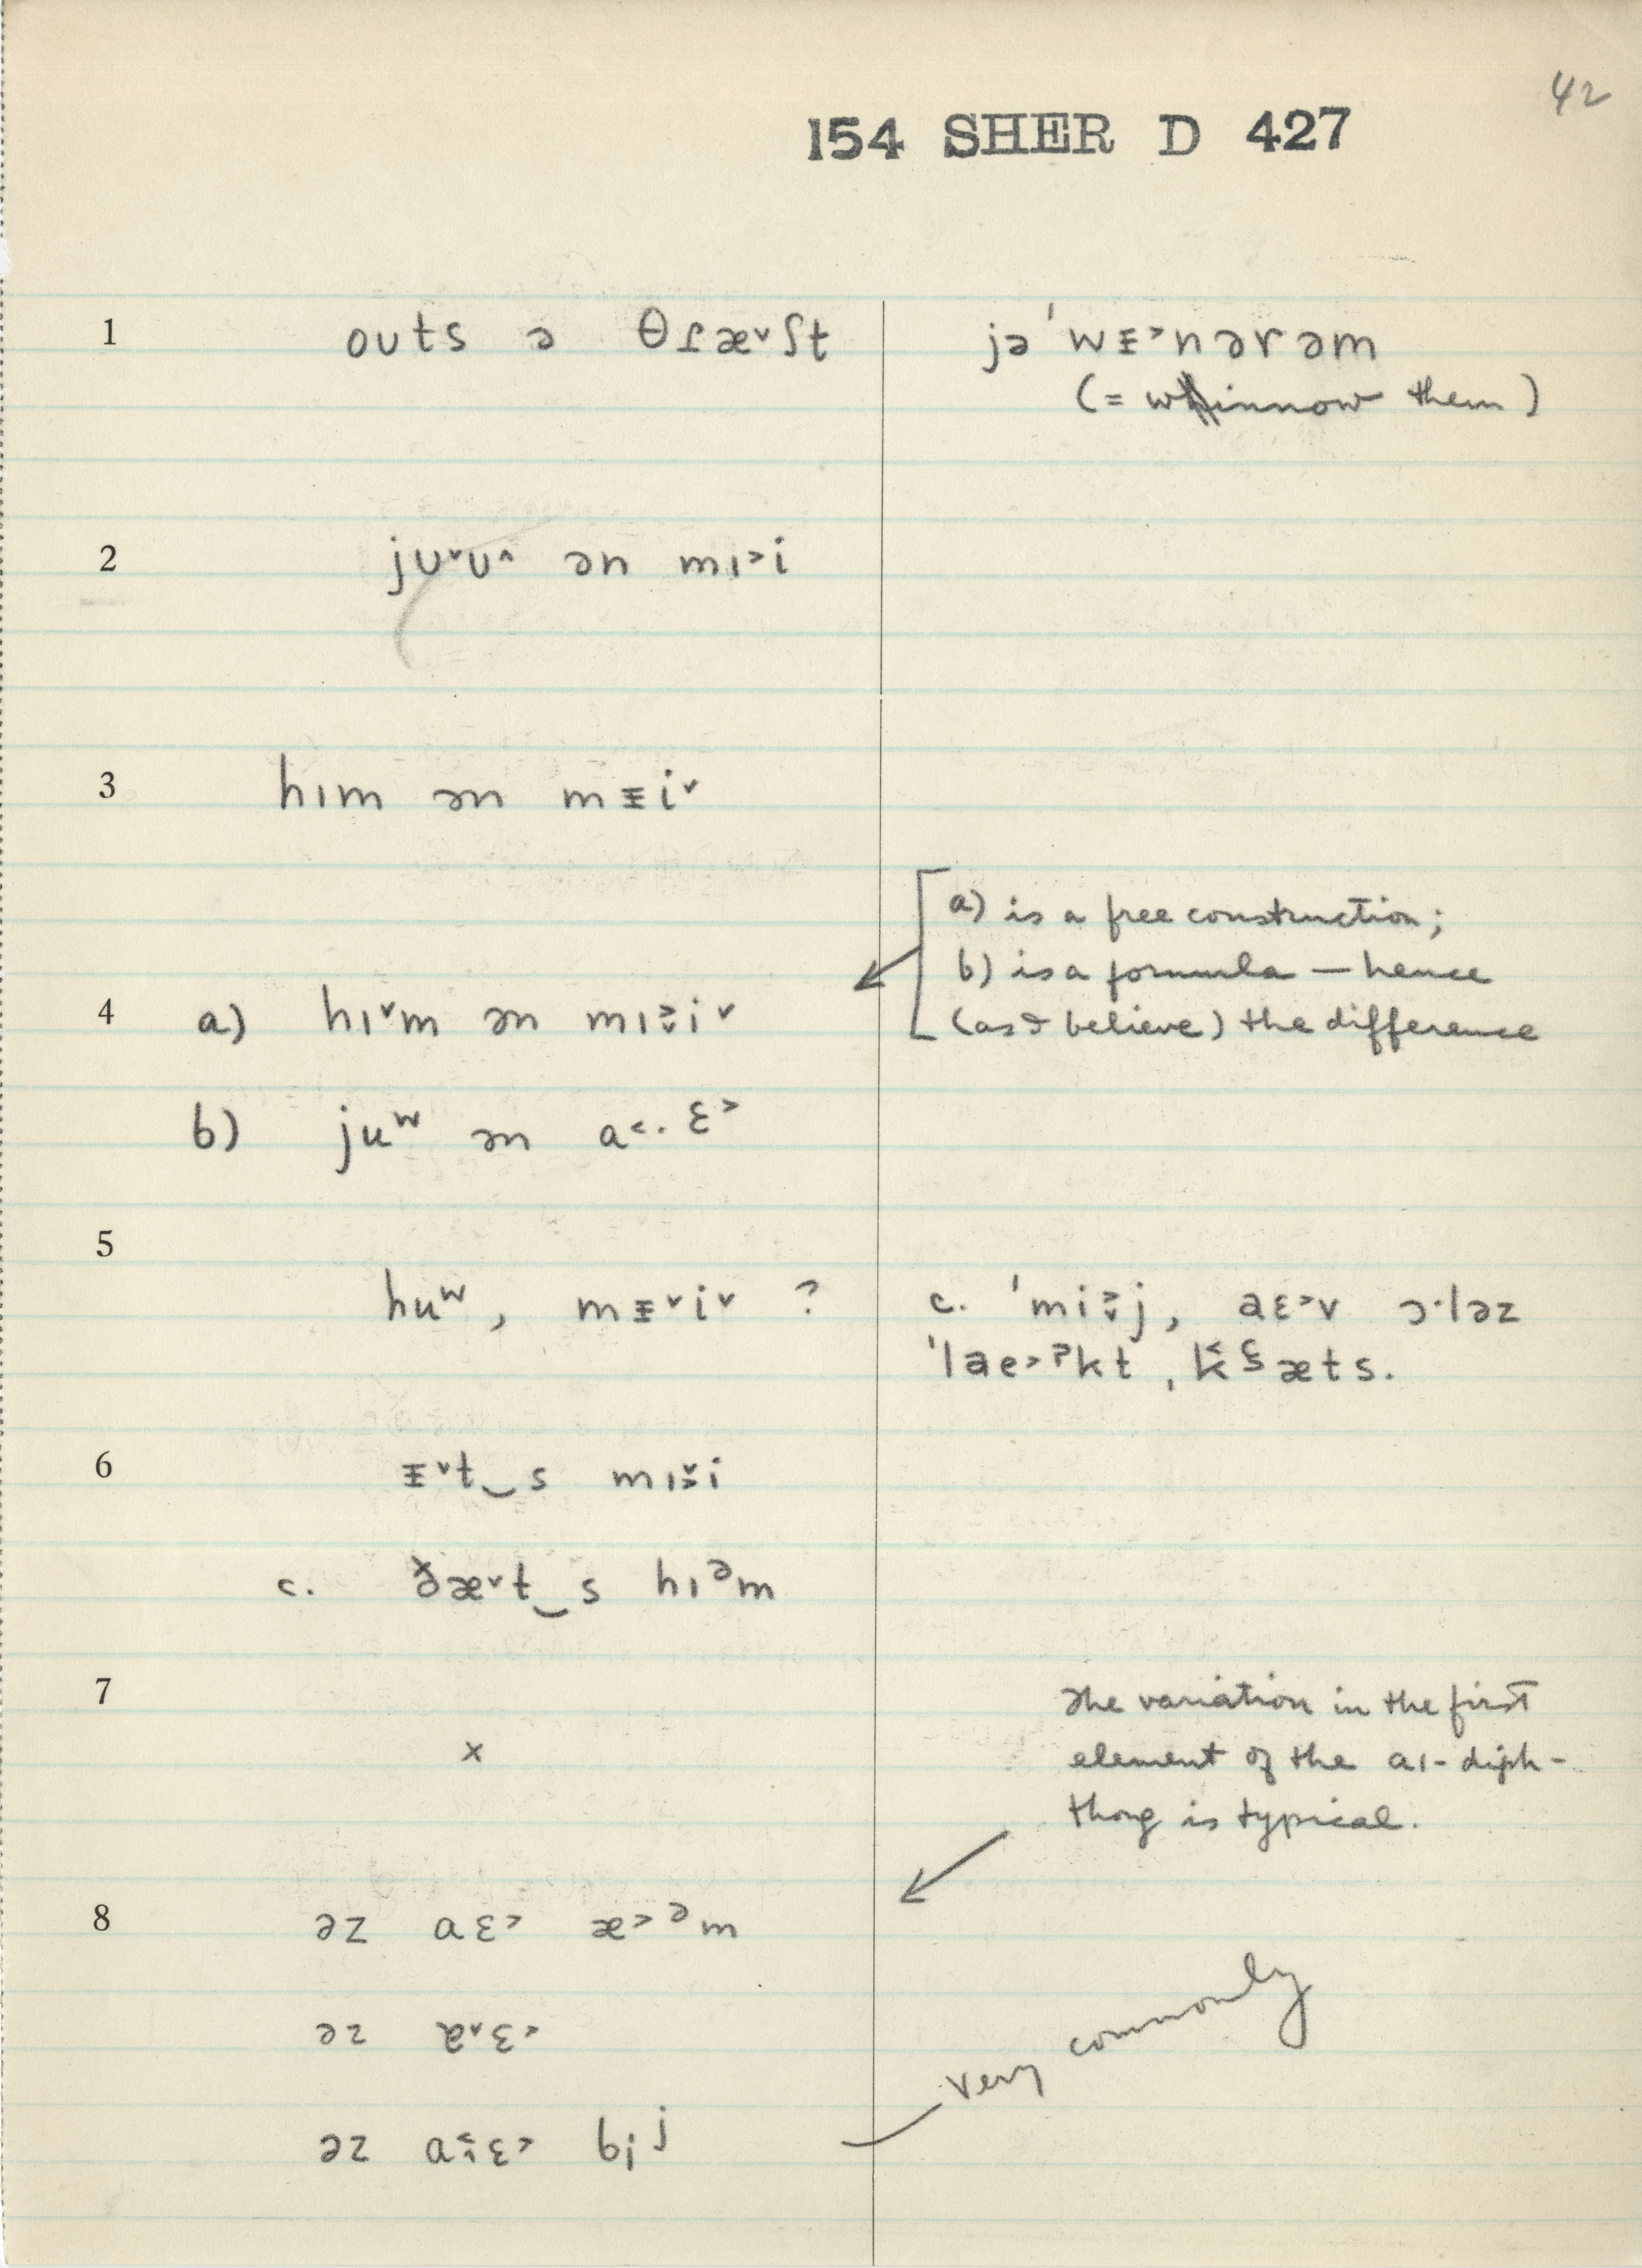 42
154 SHER D 427
1 oʊts ə θɾæ˅ʃt
jəˈwᵻ˃nərəm
(= winnow them)
2 jʊ˅ʊ˄ ən mɪ˃i
3 hɪm ən mᵻi˅
a) is a free construction;
b) is a formula — hence
(as I believe) the difference
4 a) hɪ˅m ən mɪ˃˅i˅
b) juʷ ən a˂·ɛ˃
5
huʷ, mᵻ˅i˅ ?
c. ˈmi˃˅j, aɛ˃v ɔ·ləz
ˈlae˃ˀkt, k˂æts.
6 ᵻ˅t‿s mɪ˅˃i
c. ðæ˅t‿s hɪᵊm
7
x
The variation in the first
element of the aɪ-diph-
thong is typical.
8 əz aɛ˃ æ˃˃ᵊm
əz ɐ˅ɛ˂
very commonly
əz a˂ɛ˃ biʲ